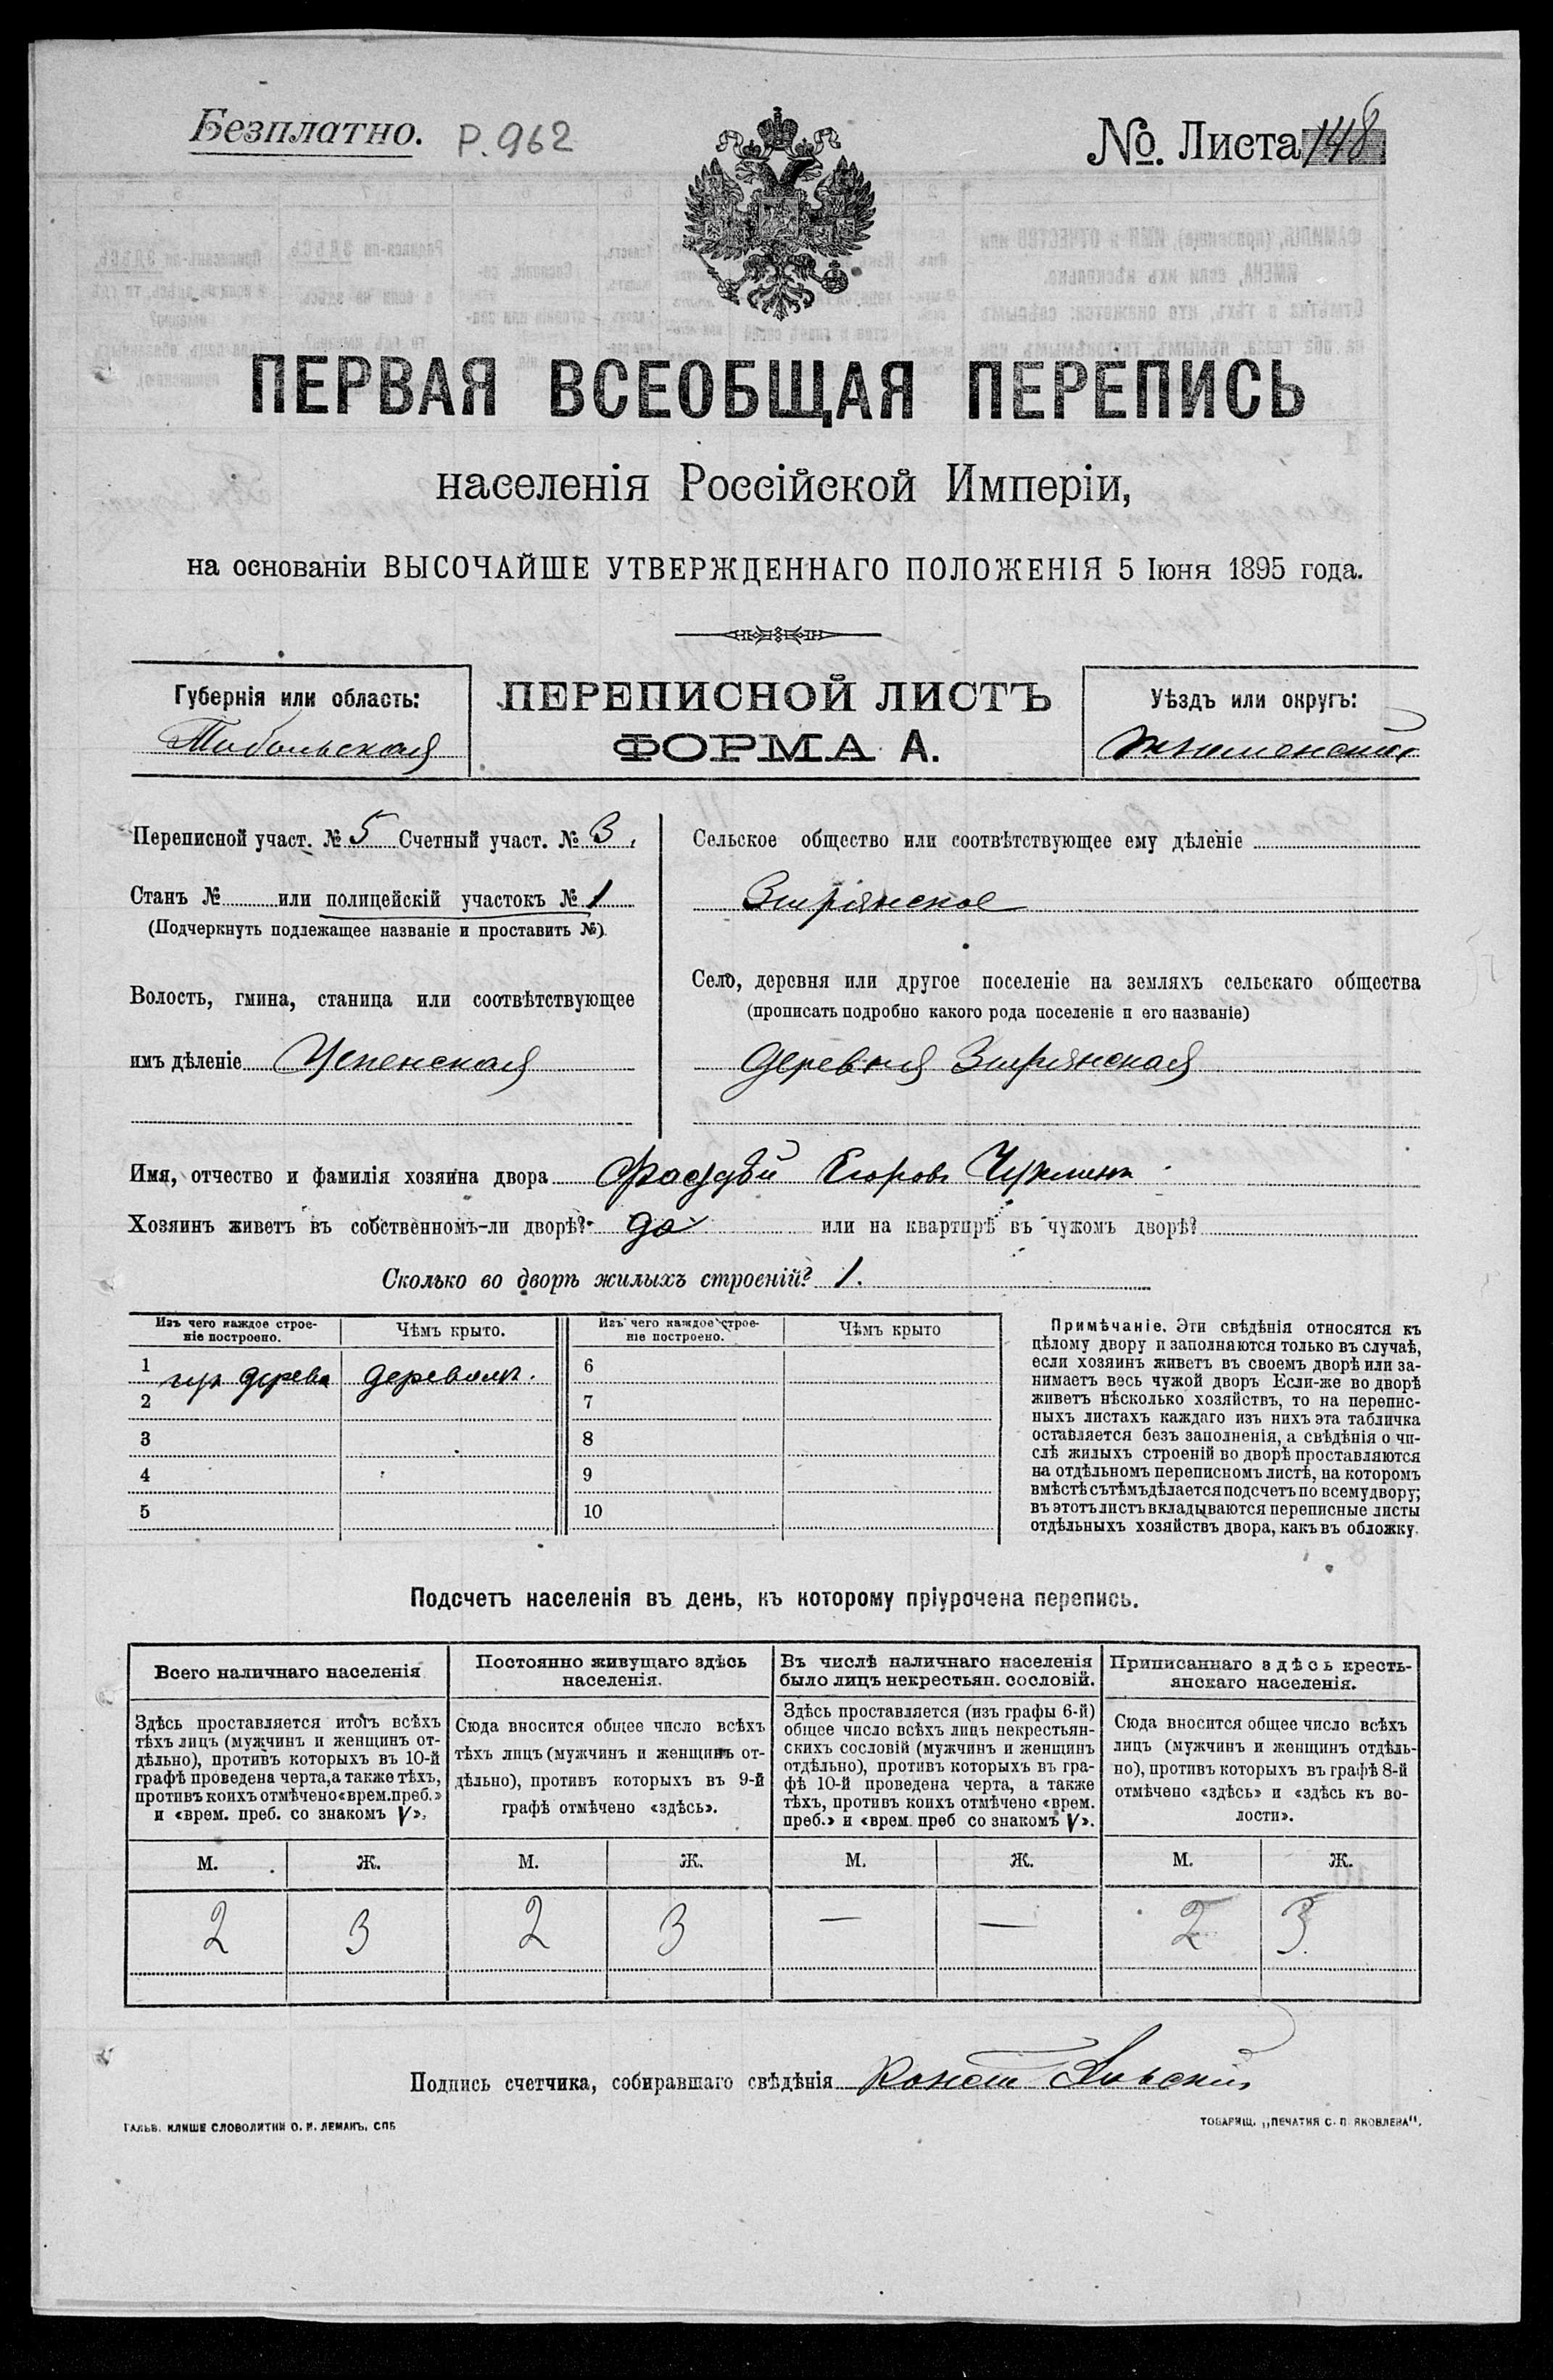 Безплатно. Р. 962
№. Листа 148
ПЕРВАЯ ВСЕОБЩАЯ ПЕРЕПИСЬ
населенія Россійской Имперіи,
на основаніи ВЫСОЧАЙШЕ УТВЕРЖДЕННАГО ПОЛОЖЕНІЯ 5 Іюня 1895 года.
Губернія или область:
Тобольская
ПЕРЕПИСНОЙ ЛИСТЪ
ФОРМА А.
Уѣздъ или округъ:
Тюменскій
Переписной участ. № 5 Счетный участ. № 3.
Станъ № или полицейскій участокъ № 1
(Подчеркнуть подлежащее названіе и проставить №)
Волость, гмина, станица или соотвѣтствующее
имъ дѣленіе Успенская
Сельское общество или соотвѣтствующее ему дѣленіе
Зырянское
Село, деревня или другое поселеніе на земляхъ сельскаго общества
(прописать подробно какого рода поселеніе и его названіе)
деревня Зырянская
Имя, отчество и фамилія хозяина двора Фаддѣй Егоровъ
Хозяинъ живетъ въ собственномъ-ли дворѣ? да или на квартирѣ въ чужомъ дворѣ?
Сколько во дворѣ жилыхъ строеній? 1.
Изъ чего каждое строе-
ніе построено.
Чѣмъ крыто.
Изъ чего каждое строе-
ніе построено.
Чѣмъ крыто
1 изъ дерева деревомъ.
2
3
4
5
6
7
8
9
10
Примѣчаніе. Эти свѣдѣнія относятся къ
цѣлому двору и заполняются только въ случаѣ,
если хозяинъ живетъ въ своемъ дворѣ или за-
нимаетъ весь чужой дворъ Если-же во дворѣ
живетъ нѣсколько хозяйствъ, то на перепис-
ныхъ листахъ каждаго изъ нихъ эта табличка
оставляется безъ заполненія, а свѣдѣнія о чи-
слѣ жилыхъ строеній во дворѣ проставляются
на отдѣльномъ переписномъ листѣ, на которомъ
вмѣстѣ съ тѣмъ дѣлается подсчетъ по всему двору;
въ этотъ листъ вкладываются переписные листы
отдѣльныхъ хозяйствъ двора, какъ въ обложку.
Подсчетъ населенія въ день, къ которому пріурочена перепись.
Всего наличнаго населенія
Здѣсь проставляется итогъ всѣхъ
тѣхъ лицъ (мужчинъ и женщинъ от-
дѣльно), противъ которыхъ въ 10-й
графѣ проведена черта, а также тѣхъ,
противъ коихъ отмѣчено «врем. преб.»
и «врем. преб. со знакомъ V».
Постоянно живущаго здѣсь
населенія.
Сюда вносится общее число всѣхъ
тѣхъ лицъ (мужчинъ и женщинъ от-
дѣльно), противъ которыхъ въ 9-й
графѣ отмѣчено «здѣсь».
Въ числѣ наличнаго населенія
было лицъ некрестьян. сословій.
Здѣсь проставляется (изъ графы 6-й)
общее число всѣхъ лицъ некрестьян-
скихъ сословій (мужчинъ и женщинъ
отдѣльно), противъ которыхъ въ гра-
фѣ 10-й проведена черта, а также
тѣхъ, противъ коихъ отмѣчено «врем.
преб.» и «врем. преб со знакомъ V».
Приписаннаго здѣсь кресть-
янскаго населенія.
Сюда вносится общее число всѣхъ
лицъ (мужчинъ и женщинъ отдѣль-
но), противъ которыхъ въ графѣ 8-й
отмѣчено «здѣсь» и «здѣсь къ во-
лости».
М. Ж. М. Ж. М. Ж. М. Ж.
2 3 2 3 — — 2 3
Подпись счетчика, собиравшаго свѣдѣнія Конст
ГАЛЬВ. КЛИШЕ СЛОВОЛИТНИ О. И. ЛЕМАНЪ, СПБ
ТОВАРИЩ. „ПЕЧАТНЯ С. П. ЯКОВЛЕВА".